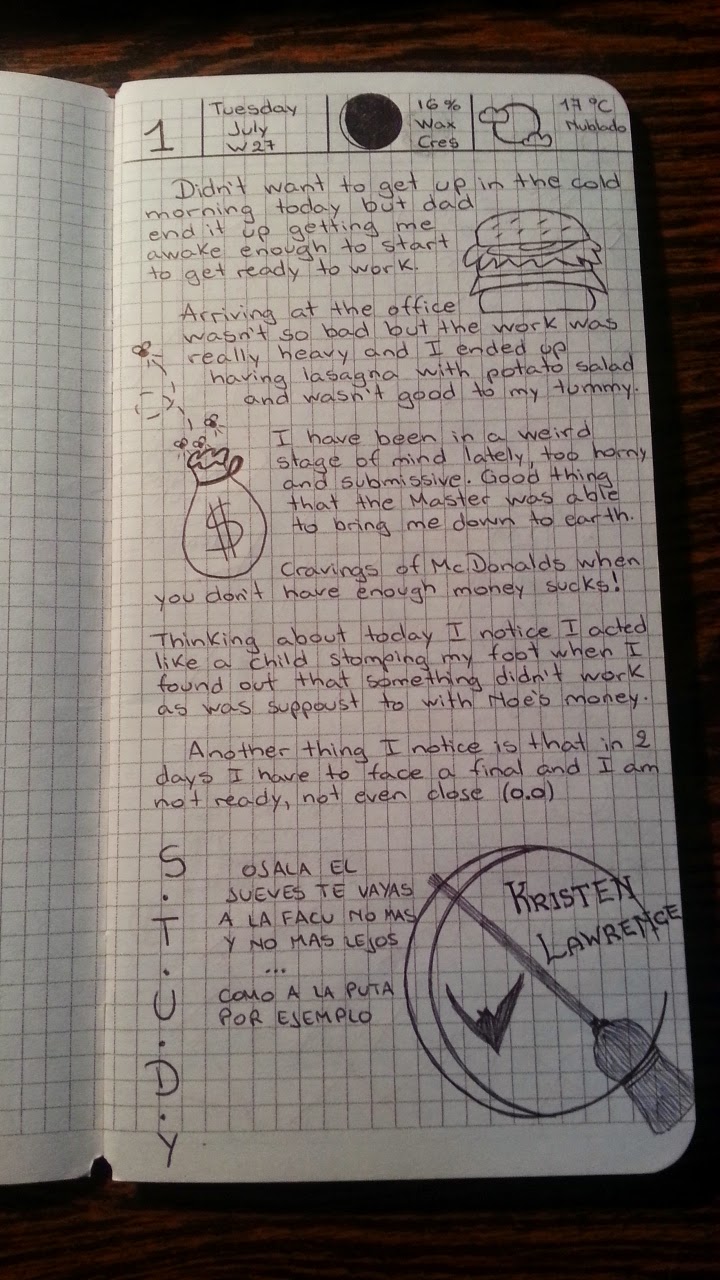 1
Tuesday
July
W27
16%
Wax
Cres
17°C
Nublado
Didn't want to get up in the cold
morning today but dad
end it up getting me
awake enough to start
to get ready to work.
Arriving at the office
wasn't so bad but the work was
really heavy and I ended up
having lasagna with potato salad
and wasn't good to my tummy.
I have been in a weird
stage of mind lately, too horny
and submissive. Good thing
that the Master was able
to bring me down to earth.
$
Cravings of McDonalds when
you don't have enough money sucks!
Thinking about today I notice I acted
like a child stomping my foot when I
found out that something didn't work
as was suppoust to with Moe's money.
Another thing I notice is that in 2
days I have to face a final and I am
not ready, not even close (0.0)
S.T.U.D.Y
OJALA EL
JUEVES TE VAYAS
A LA FACU NO MAS
Y NO MAS LEJOS
...
COMO A LA PUTA
POR EJEMPLO
KRISTEN
LAWRENCE